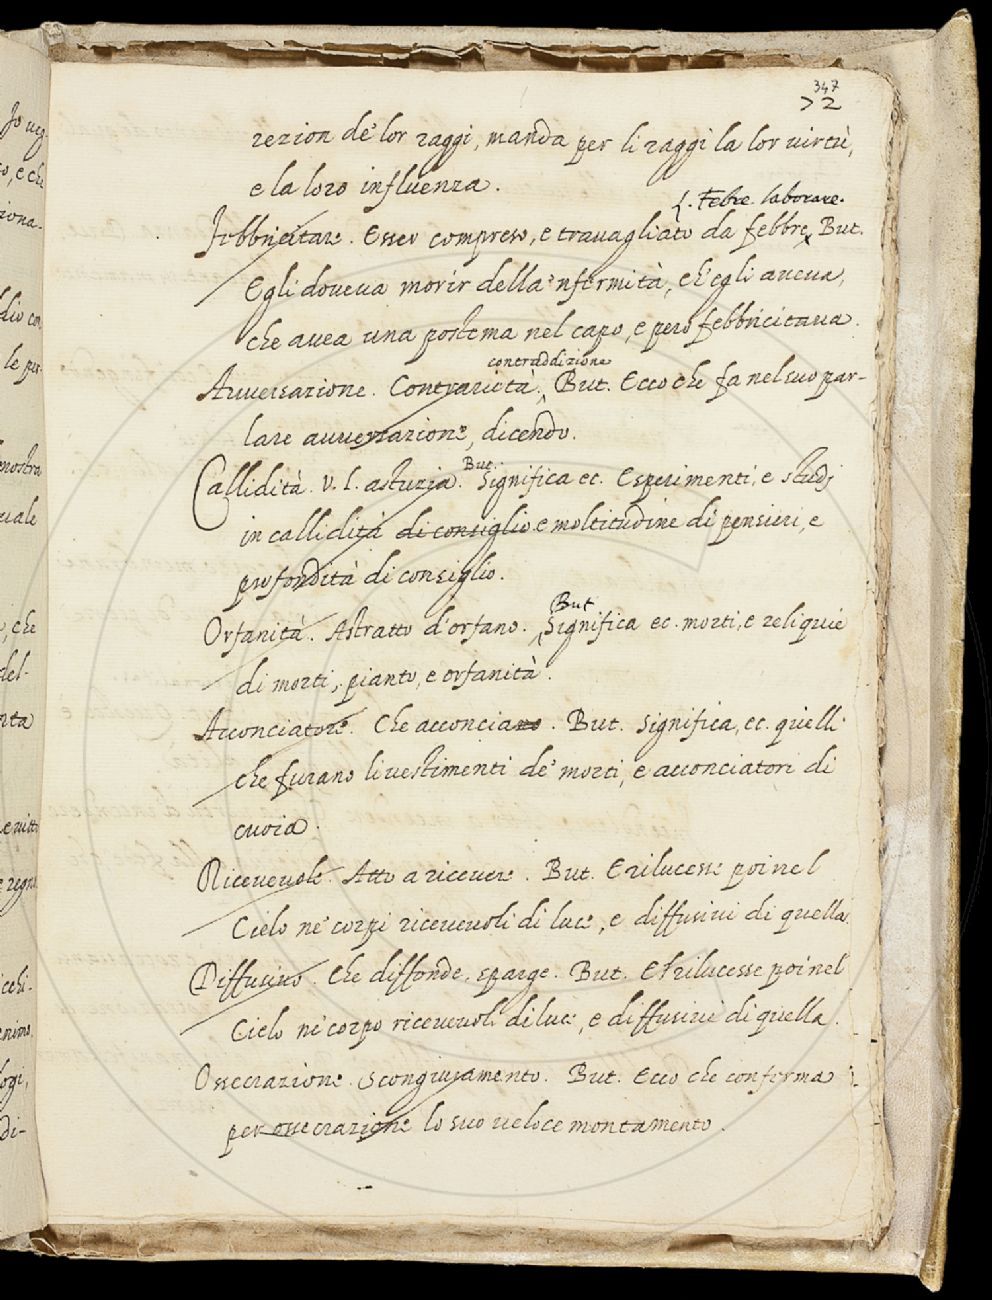 347
72
rezion de' lor raggi, manda per li raggi la lor uirtù,
e la loro influenza.
f. Febre. laborare.
Febbricitare. Esser compreso, e trauagliato da febbre, But.
Egli doueua morir della 'nfermità, ch'egli aueua,
che auea una postema nel capo, e però febbricitaua.
contraddizione
Auuersazione. Contrarietà. But. Ecco che fa nel suo par-
lare auuersazione, dicendo.
But.
Callidità. V. L. astuzia. Significa ec. Esperimenti, e studj
in callidità di consiglio e moltitudine di pensieri, e
profondità di consiglio.
But
Orfanità. Astratto d'orfano. Significa ec. morti, e reliquie
di morti, pianto, e orfanità.
Acconciatore. Che acconciano. But. Significa, ec. quelli
che furano li uestimenti de' morti, e acconciatori di
cuoia.
Riceueuole. Atto a riceuere. But. E rilucesse poi nel
Cielo ne' corpi riceueuoli di luce, e diffusiui di quella.
Diffusiuo. Che diffonde, sparge. But. E rilucesse poi nel
Cielo ne' corpo riceueuoli di luce, e diffusiui di quella.
Ossecrazione. Scongiuramento. But. Ecco che conferma
per ossecrazione lo suo ueloce montamento.